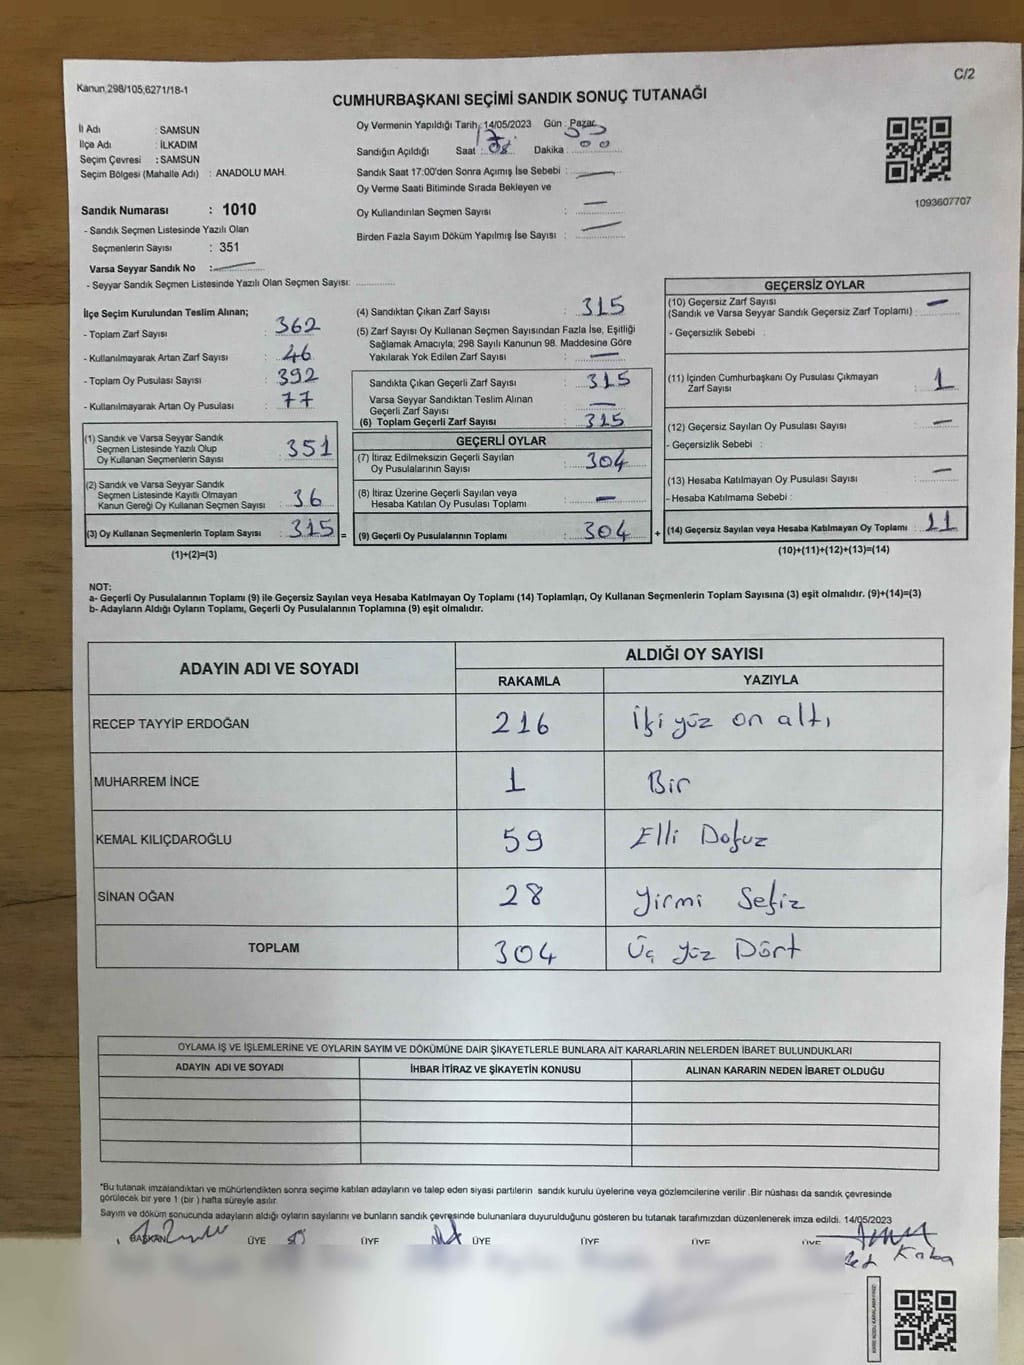 Kanun 298/105,6271/18-1
C/2
CUMHURBAŞKANI SEÇİMİ SANDIK SONUÇ TUTANAĞI
İl Adı : SAMSUN
İlçe Adı : İLKADIM
Seçim Çevresi : SAMSUN
Seçim Bölgesi (Mahalle Adı) : ANADOLU MAH.
Sandık Numarası : 1010
- Sandık Seçmen Listesinde Yazılı Olan
Seçmenlerin Sayısı : 351
Varsa Seyyar Sandık No :
- Seyyar Sandık Seçmen Listesinde Yazılı Olan Seçmen Sayısı:
Oy Vermenin Yapıldığı Tarih: 14/05/2023 Gün : Pazar
Sandığın Açıldığı Saat : 08 Dakika : 00
17
Sandık Saat 17:00'den Sonra Açımış İse Sebebi : —
Oy Verme Saati Bitiminde Sırada Bekleyen ve
Oy Kullandırılan Seçmen Sayısı : —
Birden Fazla Sayım Döküm Yapılmış İse Sayısı : —
1093607707
İlçe Seçim Kurulundan Teslim Alınan;
- Toplam Zarf Sayısı : 362
- Kullanılmayarak Artan Zarf Sayısı : 46
- Toplam Oy Pusulası Sayısı : 392
- Kullanılmayarak Artan Oy Pusulası : 77
(1) Sandık ve Varsa Seyyar Sandık
Seçmen Listesinde Yazılı Olup
Oy Kullanan Seçmenlerin Sayısı : 351
(2) Sandık ve Varsa Seyyar Sandık
Seçmen Listesinde Kayıtlı Olmayan
Kanun Gereği Oy Kullanan Seçmen Sayısı : 36
(3) Oy Kullanan Seçmenlerin Toplam Sayısı : 315 =
(1)+(2)=(3)
(4) Sandıktan Çıkan Zarf Sayısı : 315
(5) Zarf Sayısı Oy Kullanan Seçmen Sayısından Fazla İse, Eşitliği
Sağlamak Amacıyla, 298 Sayılı Kanunun 98. Maddesine Göre
Yakılarak Yok Edilen Zarf Sayısı : —
Sandıkta Çıkan Geçerli Zarf Sayısı : 315
Varsa Seyyar Sandıktan Teslim Alınan
Geçerli Zarf Sayısı : —
(6) Toplam Geçerli Zarf Sayısı : 315
GEÇERLİ OYLAR
(7) İtiraz Edilmeksizin Geçerli Sayılan
Oy Pusulalarının Sayısı : 304
(8) İtiraz Üzerine Geçerli Sayılan veya
Hesaba Katılan Oy Pusulası Toplamı : —
(9) Geçerli Oy Pusulalarının Toplamı : 304 +
GEÇERSİZ OYLAR
(10) Geçersiz Zarf Sayısı
(Sandık ve Varsa Seyyar Sandık Geçersiz Zarf Toplamı) : —
- Geçersizlik Sebebi :
(11) İçinden Cumhurbaşkanı Oy Pusulası Çıkmayan
Zarf Sayısı : 1
(12) Geçersiz Sayılan Oy Pusulası Sayısı : —
- Geçersizlik Sebebi :
(13) Hesaba Katılmayan Oy Pusulası Sayısı : —
- Hesaba Katılmama Sebebi :
(14) Geçersiz Sayılan veya Hesaba Katılmayan Oy Toplamı : 11
(10)+(11)+(12)+(13)=(14)
NOT:
a- Geçerli Oy Pusulalarının Toplamı (9) ile Geçersiz Sayılan veya Hesaba Katılmayan Oy Toplamı (14) Toplamları, Oy Kullanan Seçmenlerin Toplam Sayısına (3) eşit olmalıdır. (9)+(14)=(3)
b- Adayların Aldığı Oyların Toplamı, Geçerli Oy Pusulalarının Toplamına (9) eşit olmalıdır.
ADAYIN ADI VE SOYADI
ALDIĞI OY SAYISI
RAKAMLA YAZIYLA
RECEP TAYYİP ERDOĞAN 216 İki yüz on altı
MUHARREM İNCE 1 Bir
KEMAL KILIÇDAROĞLU 59 Elli Dokuz
SİNAN OĞAN 28 Yirmi Sekiz
TOPLAM 304 Üç yüz Dört
OYLAMA İŞ VE İŞLEMLERİNE VE OYLARIN SAYIM VE DÖKÜMÜNE DAİR ŞİKAYETLERLE BUNLARA AİT KARARLARIN NELERDEN İBARET BULUNDUKLARI
ADAYIN ADI VE SOYADI İHBAR İTİRAZ VE ŞİKAYETİN KONUSU ALINAN KARARIN NEDEN İBARET OLDUĞU
"Bu tutanak imzalandıktan ve mühürlendikten sonra seçime katılan adayların ve talep eden siyasi partilerin sandık kurulu üyelerine veya gözlemcilerine verilir .Bir nüshası da sandık çevresinde
görülecek bir yere 1 (bir ) hafta süreyle asılır.
Sayım ve döküm sonucunda adayların aldığı oyların sayılarını ve bunların sandık çevresinde bulunanlara duyurulduğunu gösteren bu tutanak tarafımızdan düzenlenerek imza edildi. 14/05/2023
BAŞKAN ÜYE ÜYE ÜYE ÜYE ÜYE ÜYE
Kaba